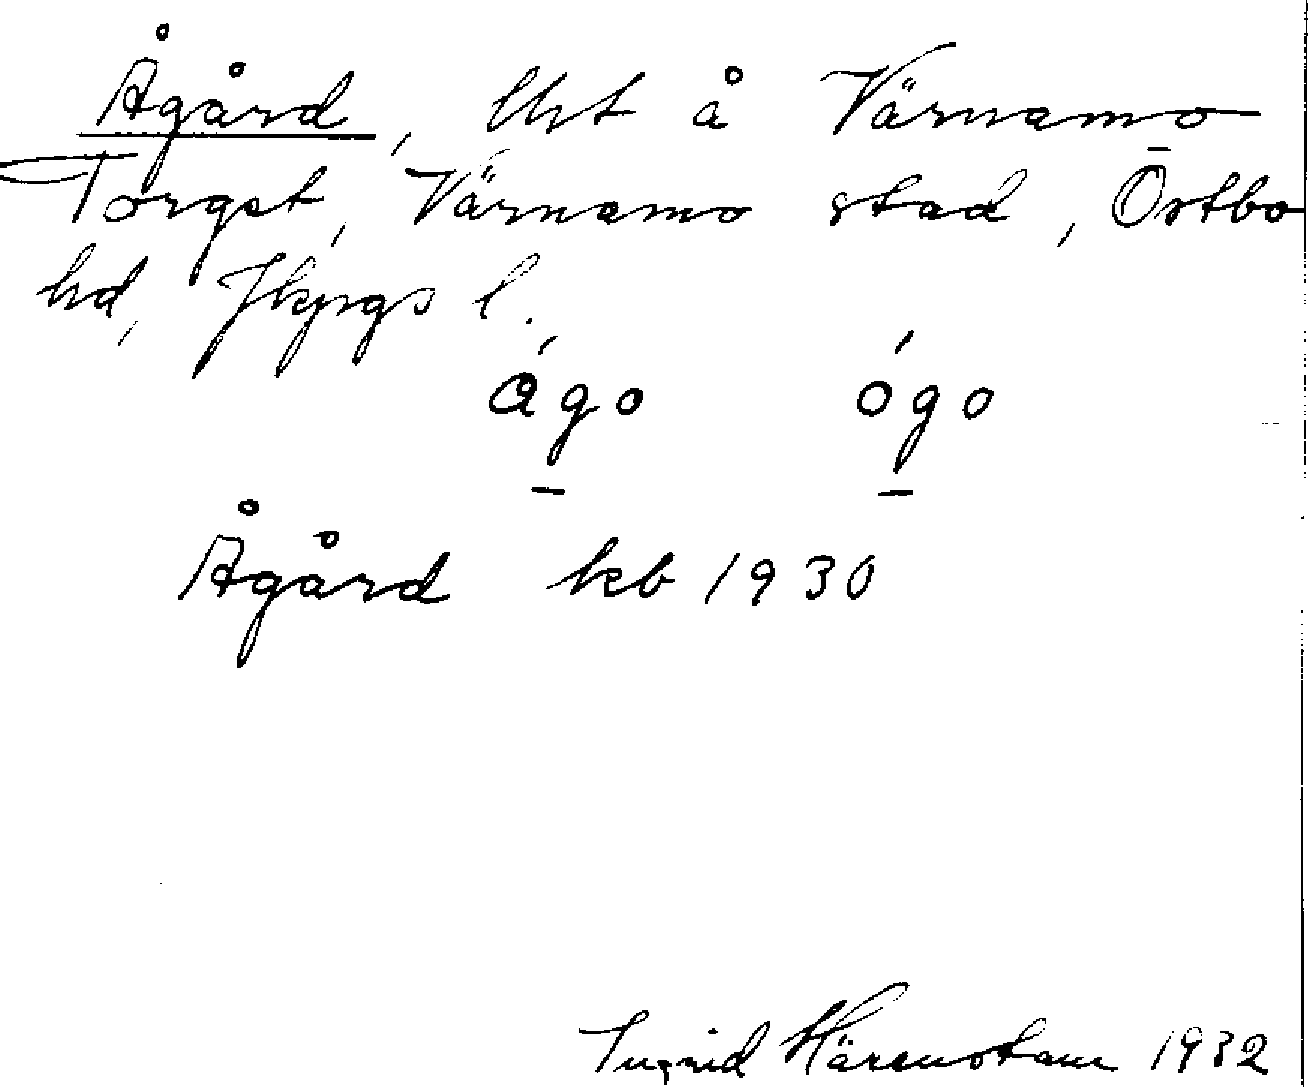 Ågård, lht å Värnamo
Torget, Värnamo stad, Östbo
hd, Jkpgs l.
ágo ógo
Ågård kb 1930
Ingrid Härenstam 1932